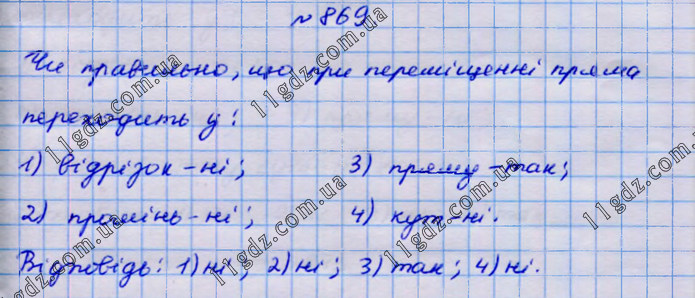 № 869
Чи правильно, що при переміщенні пряма
переходить у:
1) відрізок - ні; 3) пряму - так;
2) промінь - ні; 4) кут - ні.
Відповідь: 1) ні; 2) ні; 3) так; 4) ні.
11gdz.com.ua
11gdz.com.ua
11gdz.com.ua
11gdz.com.ua
11gdz.com.ua
11gdz.com.ua